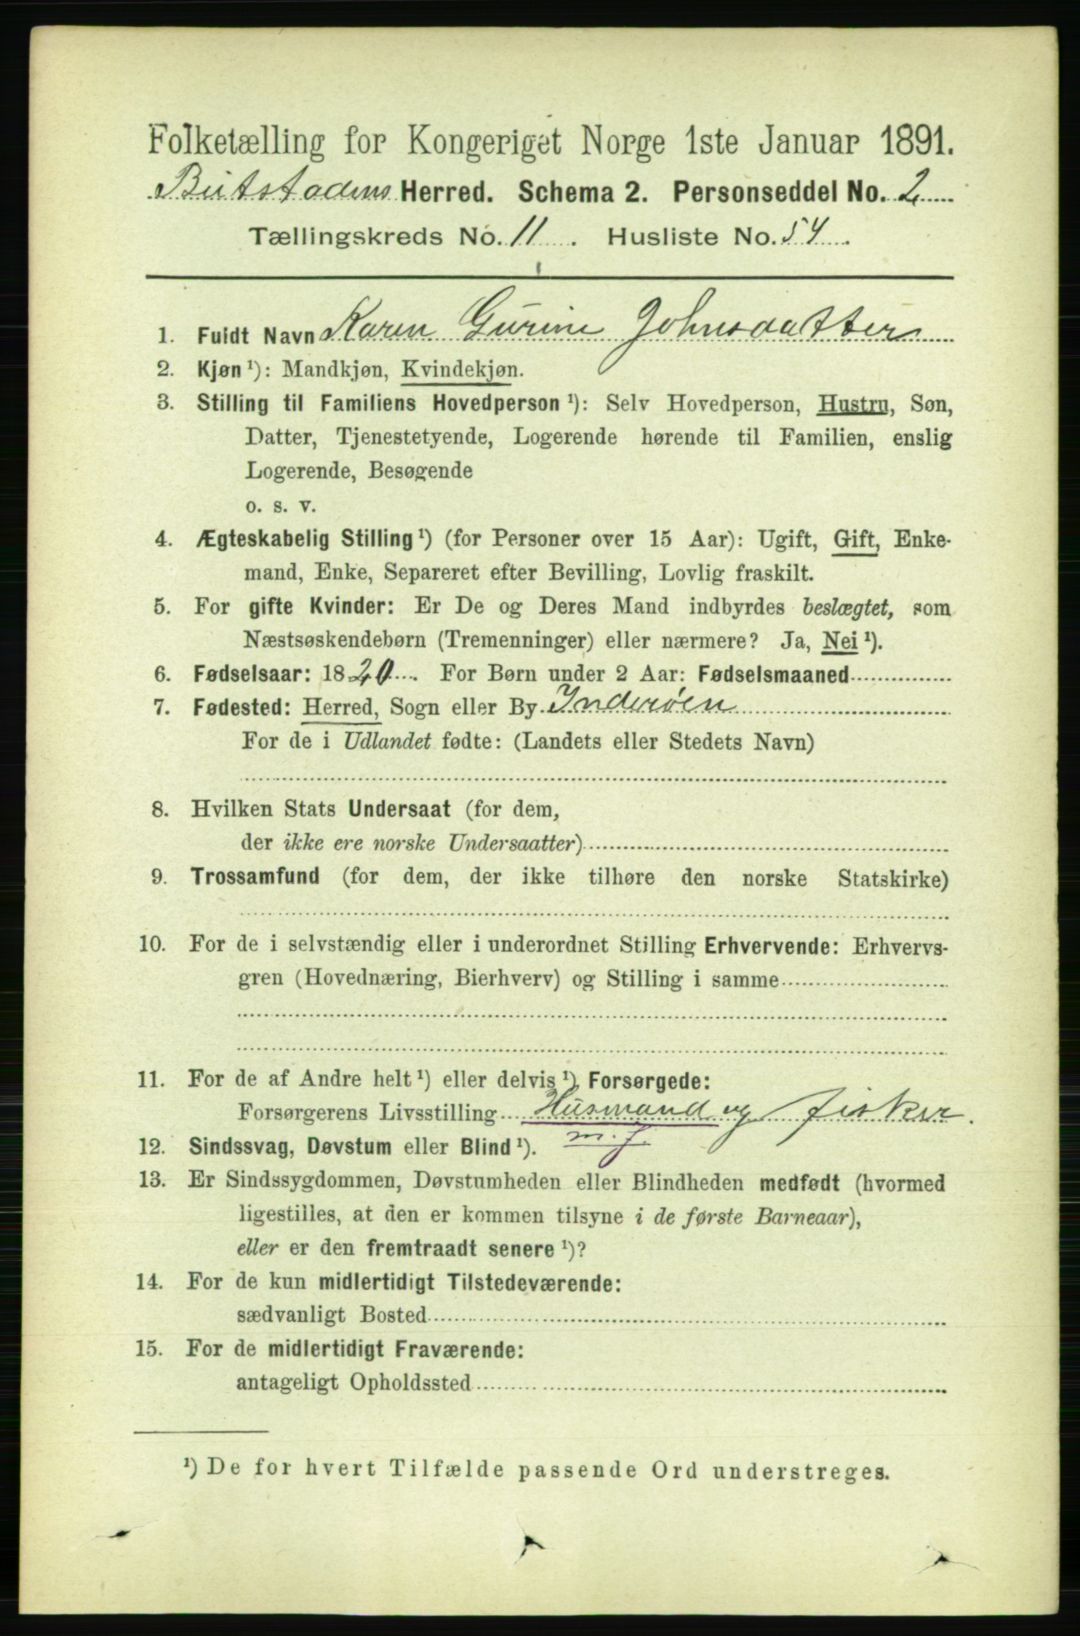 Folketælling for Kongeriget Norge 1ste Januar 1891.
Beitstadens Herred. Schema 2. Personseddel No. 2
Tællingskreds No. 11. Husliste No. 54.
1. Fuldt Navn Karen Gurine Johnsdatter
2. Kjøn ¹): Mandkjøn, Kvindekjøn.
3. Stilling til Familiens Hovedperson ¹): Selv Hovedperson, Hustru, Søn,
Datter, Tjenestetyende, Logerende hørende til Familien, enslig
Logerende, Besøgende
o. s. v.
4. Ægteskabelig Stilling ¹) (for Personer over 15 Aar): Ugift, Gift, Enke-
mand, Enke, Separeret efter Bevilling, Lovlig fraskilt.
5. For gifte Kvinder: Er De og Deres Mand indbyrdes beslægtet, som
Næstsøskendebørn (Tremenninger) eller nærmere? Ja, Nei ¹).
6. Fødselsaar: 1820. For Børn under 2 Aar: Fødselsmaaned
7. Fødested: Herred, Sogn eller By Inderøen
For de i Udlandet fødte: (Landets eller Stedets Navn)
8. Hvilken Stats Undersaat (for dem,
der ikke ere norske Undersaatter)
9. Trossamfund (for dem, der ikke tilhøre den norske Statskirke)
10. For de i selvstændig eller i underordnet Stilling Erhvervende: Erhvervs-
gren (Hovednæring, Bierhverv) og Stilling i samme
11. For de af Andre helt ¹) eller delvis ¹) Forsørgede:
Forsørgerens Livsstilling Husmand og fisker.
m. J.
12. Sindssvag, Døvstum eller Blind ¹).
13. Er Sindssygdommen, Døvstumheden eller Blindheden medfødt (hvormed
ligestilles, at den er kommen tilsyne i de første Barneaar),
eller er den fremtraadt senere ¹)?
14. For de kun midlertidigt Tilstedeværende:
sædvanligt Bosted
15. For de midlertidigt Fraværende:
antageligt Opholdssted
¹) De for hvert Tilfælde passende Ord understreges.